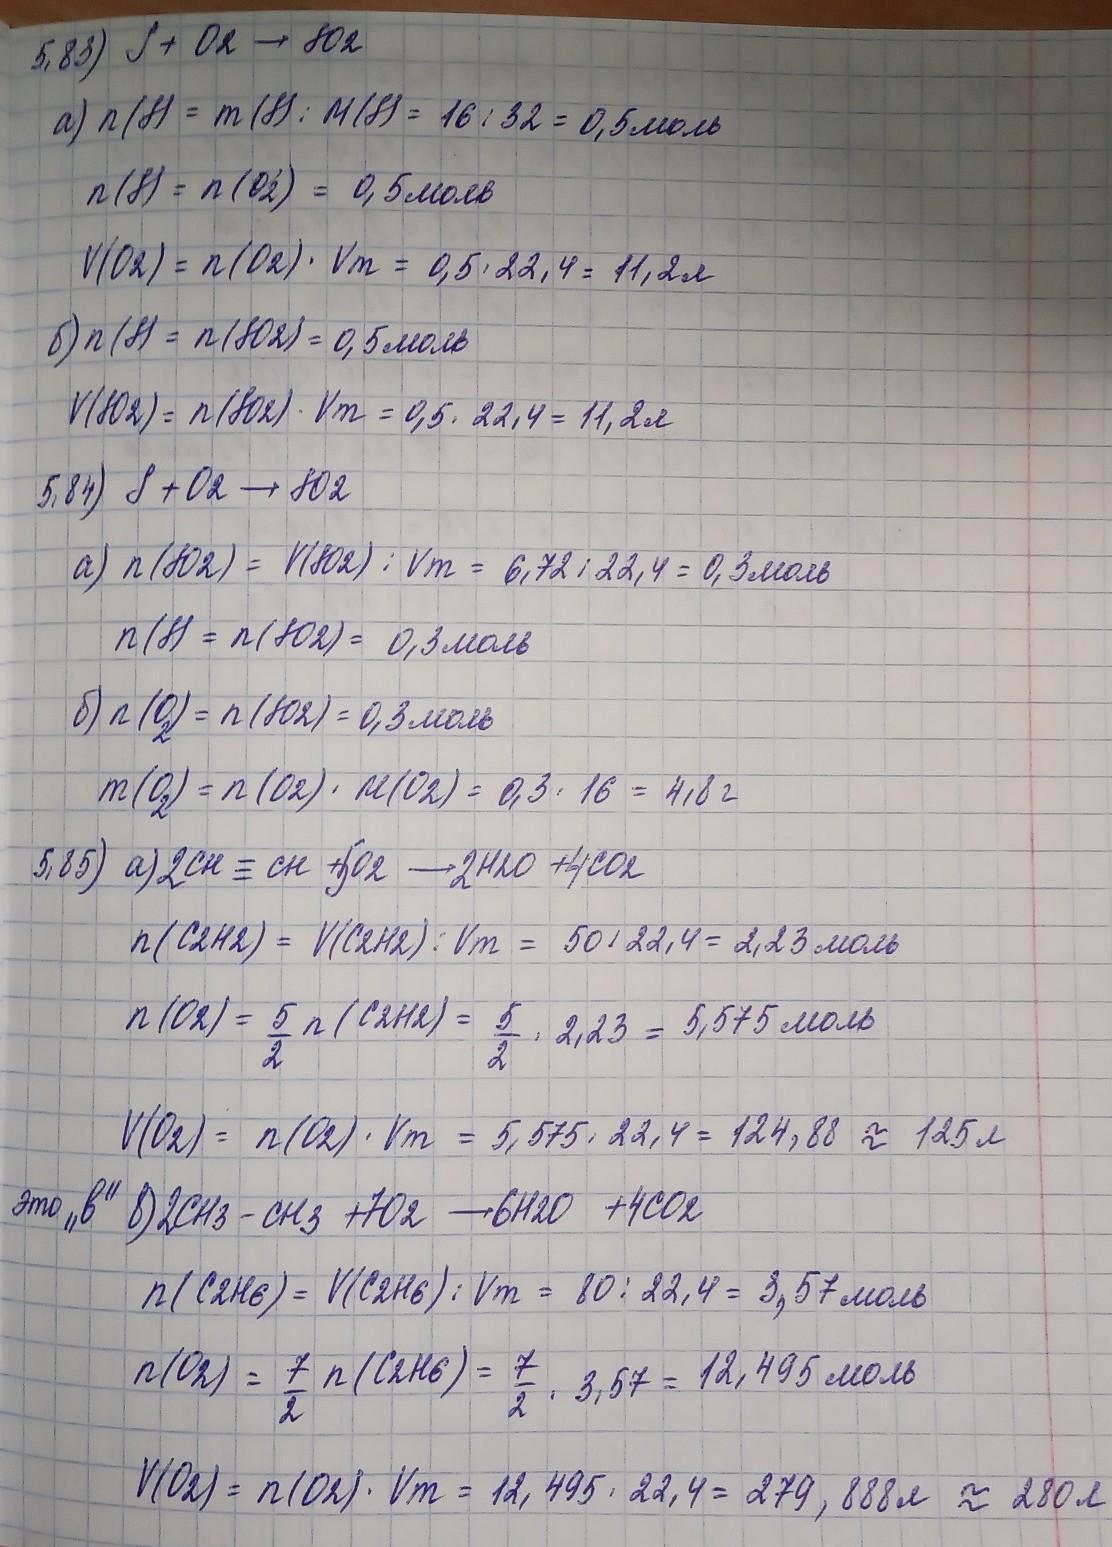 5,83) S + O2 → SO2
а) n(S) = m(S) : M(S) = 16 : 32 = 0,5 моль
n(S) = n(O2) = 0,5 моль
V(O2) = n(O2) · Vm = 0,5 · 22,4 = 11,2 л
б) n(S) = n(SO2) = 0,5 моль
V(SO2) = n(SO2) · Vm = 0,5 · 22,4 = 11,2 л
5,84) S + O2 → SO2
а) n(SO2) = V(SO2) : Vm = 6,72 : 22,4 = 0,3 моль
n(S) = n(SO2) = 0,3 моль
б) n(O2) = n(SO2) = 0,3 моль
m(O2) = n(O2) · M(O2) = 0,3 · 16 = 4,8 г
5,85) а) 2CH ≡ CH + 5O2 → 2H2O + 4CO2
n(C2H2) = V(C2H2) : Vm = 50 : 22,4 = 2,23 моль
n(O2) = 5/2 n(C2H2) = 5/2 · 2,23 = 5,575 моль
V(O2) = n(O2) · Vm = 5,575 · 22,4 = 124,88 ≈ 125 л
это „в“ в) 2CH3 - CH3 + 7O2 → 6H2O + 4CO2
n(C2H6) = V(C2H6) : Vm = 80 : 22,4 = 3,57 моль
n(O2) = 7/2 n(C2H6) = 7/2 · 3,57 = 12,495 моль
V(O2) = n(O2) · Vm = 12,495 · 22,4 = 279,888 л ≈ 280 л